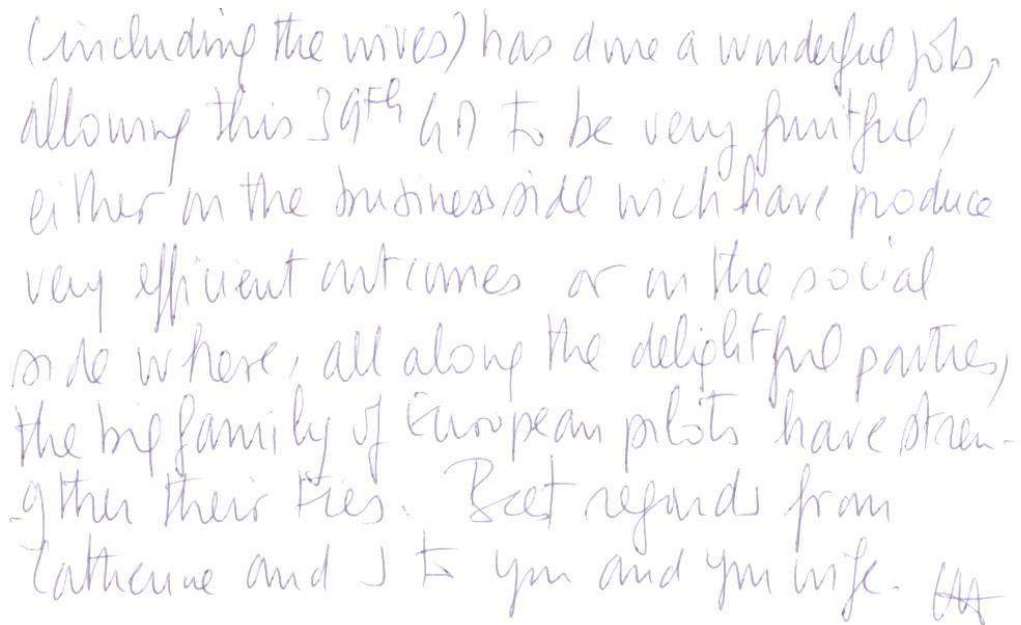 (including the wives) has done a wonderful job,
allowing this 39th GA to be very fruitful,
either on the business side wich have produce
very efficient outcomes or on the social
side where, all along the delightful parties,
the big family of European pilots have stren-
-gthen their ties. Best regards from
Catherine and I to you and you wife.